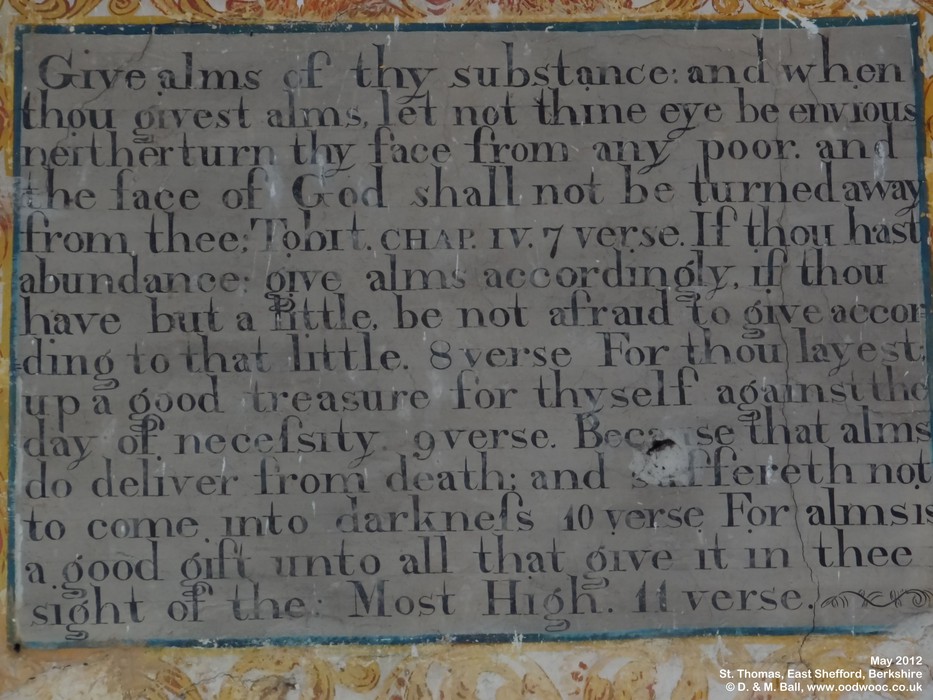 Give alms of thy substance: and when
thou givest alms, let not thine eye be envious
neither turn thy face from any poor. and
the face of God shall not be turned away
from thee; Tobit. CHAP. IV. 7 verse. If thou hast
abundance; give alms accordingly, if thou
have but a little, be not afraid to give accor=
=ding to that little. 8 verse For thou layest
up a good treasure for thyself against the
day of neceſsity 9 verse. Because that alms
do deliver from death; and suffereth not
to come into darkneſs 10 verse For alms is
a good gift unto all that give it in thee
sight of the Most High. 11 verse.
May 2012
St. Thomas, East Shefford, Berkshire
© D. & M. Ball, www.oodwooc.co.uk